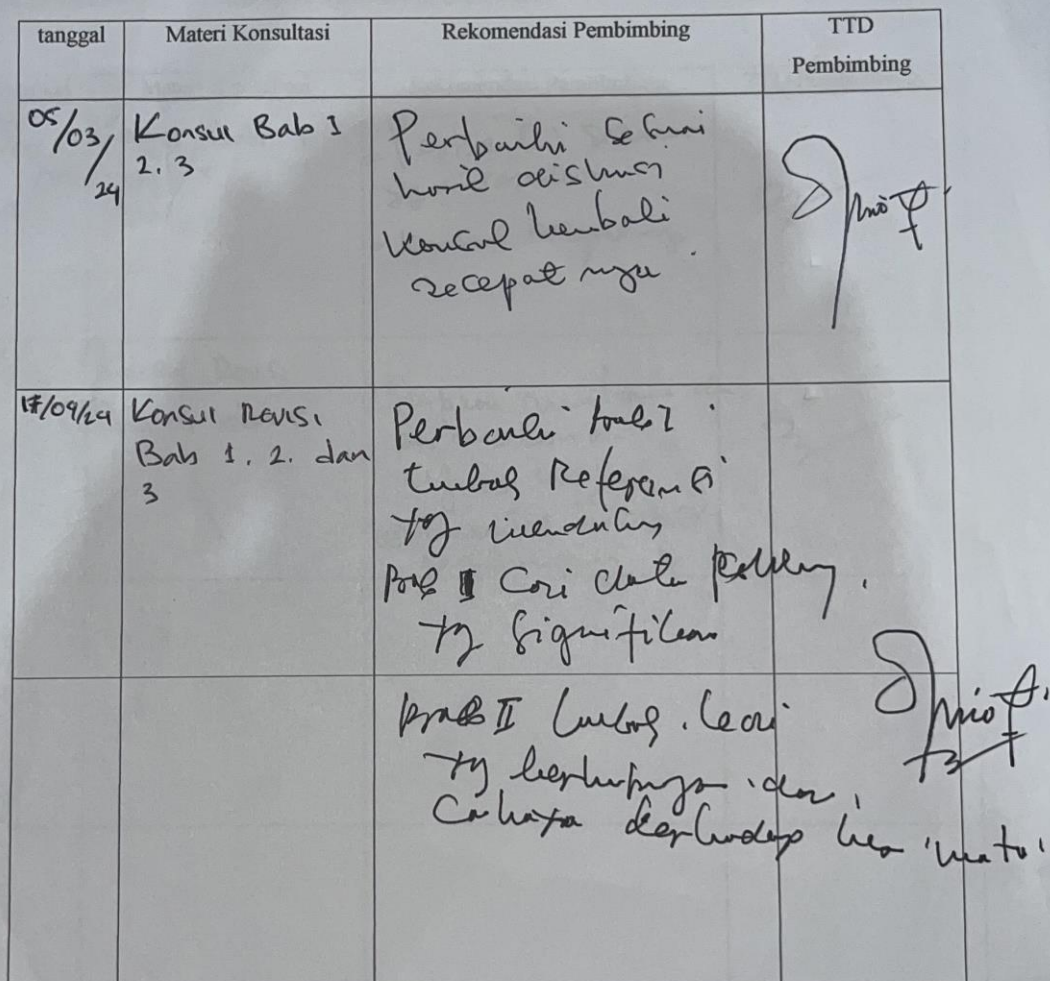 tanggal
Materi Konsultasi
Rekomendasi Pembimbing
TTD
Pembimbing
05/03/24
Konsul Bab 1
2. 3
Perbaiki sesuai
hasil diskusi
Konsul kembali
secepat nya
17/09/24
Konsul Revisi
Bab 1. 2. dan
3
Perbaiki
tambah Referensi
yg mendukung
Bab I Cari data
yg signifikan
Bab II tambah teori
yg
Cahaya terhadap